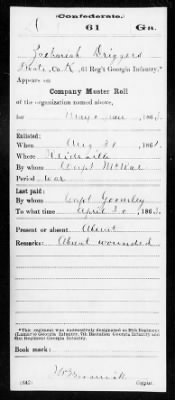 (Confederate.)
61 Ga.
Zachariah Driggers
Co. K, 61 Reg't Georgia Infantry.*
Appears on
Company Muster Roll
of the organization named above,
for May & June, 1863.
Enlisted:
When Aug. 30, 1861.
Where Reidsville
By whom Capt McRae
Period war
Last paid:
By whom Capt
To what time April 30, 1863.
Present or absent Absent
Remarks: Absent wounded
*This regiment was successively designated as 26th Regiment
(Lamar's) Georgia Infantry, 7th Battalion Georgia Infantry and
61st Regiment Georgia Infantry.
Book mark:
(642)
Copyist.